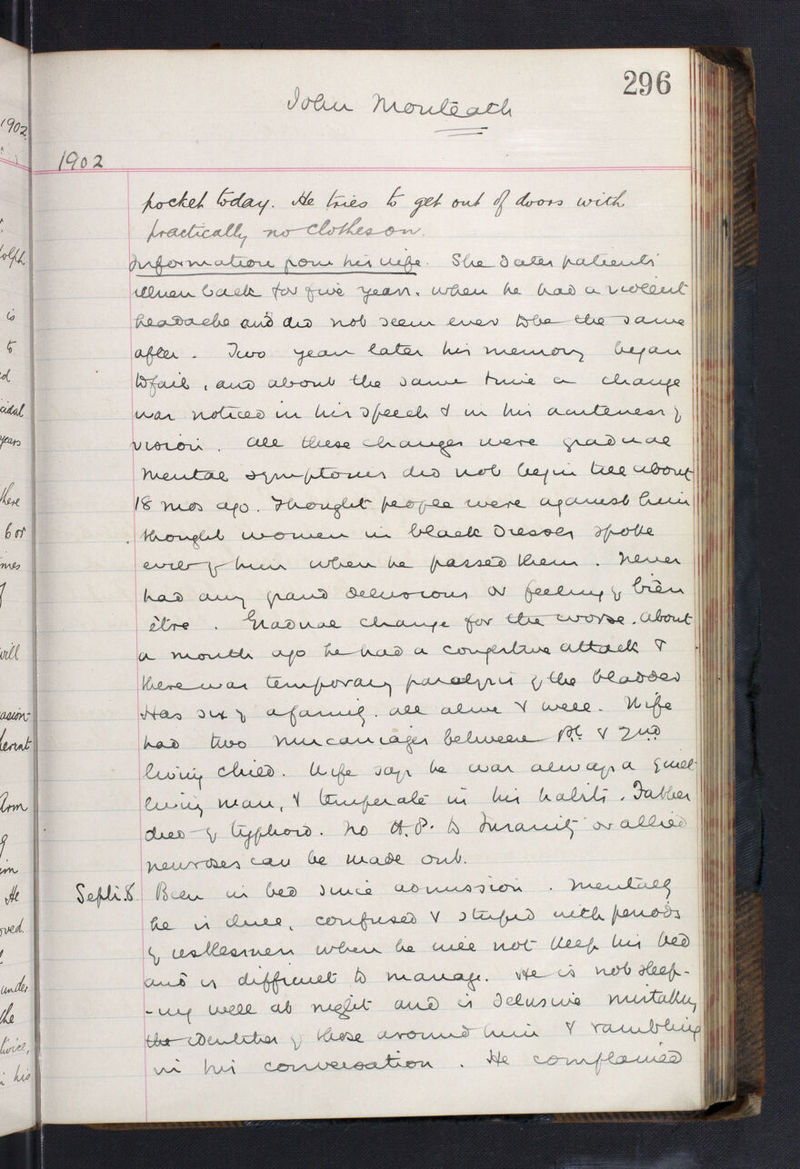 296
John Monteath
1902
pocket today. He tries to get out of doors with
practically no clothes on.
Information from his wife. She dates patients
illness back for five years. when he had a violent
headache and did not seem ever to be the same
after. Two years later his memory began
to fail, and about the same time a change
was noticed in his speech & in his acuteness of
vision. All these changes were gradual
Mental symptoms did not begin till about
18 mos ago. Thought people were against him
thought women in black dresses spoke
evil of him when he passed them. Never
had any grand delusions or feeling of bien
être. Gradual change for the worse. about
a month ago he had a congestive attack &
there was temporary paralysis of the bladder
Has six of a family. all alive & well. Wife
had two miscarriages between 1st & 2nd
living child. Wife says he was always a quiet
living man, & temperate in his habits. Father
died of typhoid. No H.P. to Insanity or allied
neuroses can be made out.
Septr. 8 Been in bed since admission. Mentally
he is dull, confused & stupid with periods
of restlessness when he will not keep his bed
and is difficult to manage. He is not sleep-
-ing well at night and is delusive mistaking
the identities of those around him & rambling
in his conversation. He complained
1902
olph
is
to
cidal
years
here
6 or
mes
will
asion
Arm
He
oved.
under
the
twice,
his